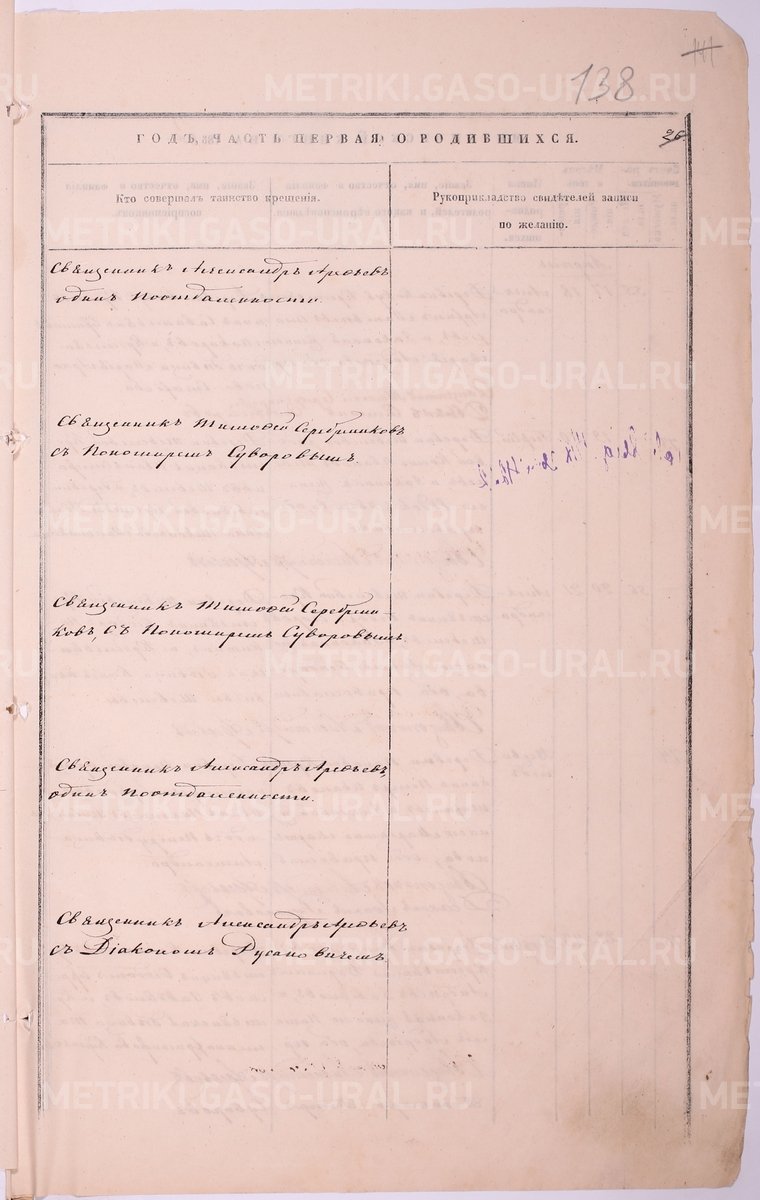 141
138
ГОДЪ, ЧАСТЬ ПЕРВАЯ О РОДИВШИХСЯ.
26
Кто совершалъ таинство крещенія.
Рукоприкладство свидѣтелей записи
по желанію.
Священникъ Александръ Арефьевъ
одинъ поотдаленности.
Священникъ Тимофей Серебренниковъ
съ Пономаремъ Суворовымъ.
Священникъ Тимофей Серебренни
ковъ, съ Пономаремъ Суворовымъ
Священникъ Александръ Арефьевъ,
одинъ поотдаленности.
Священникъ Александръ Арефьевъ
съ Діакономъ Русановичемъ
METRIKI.GASO-URAL.RU